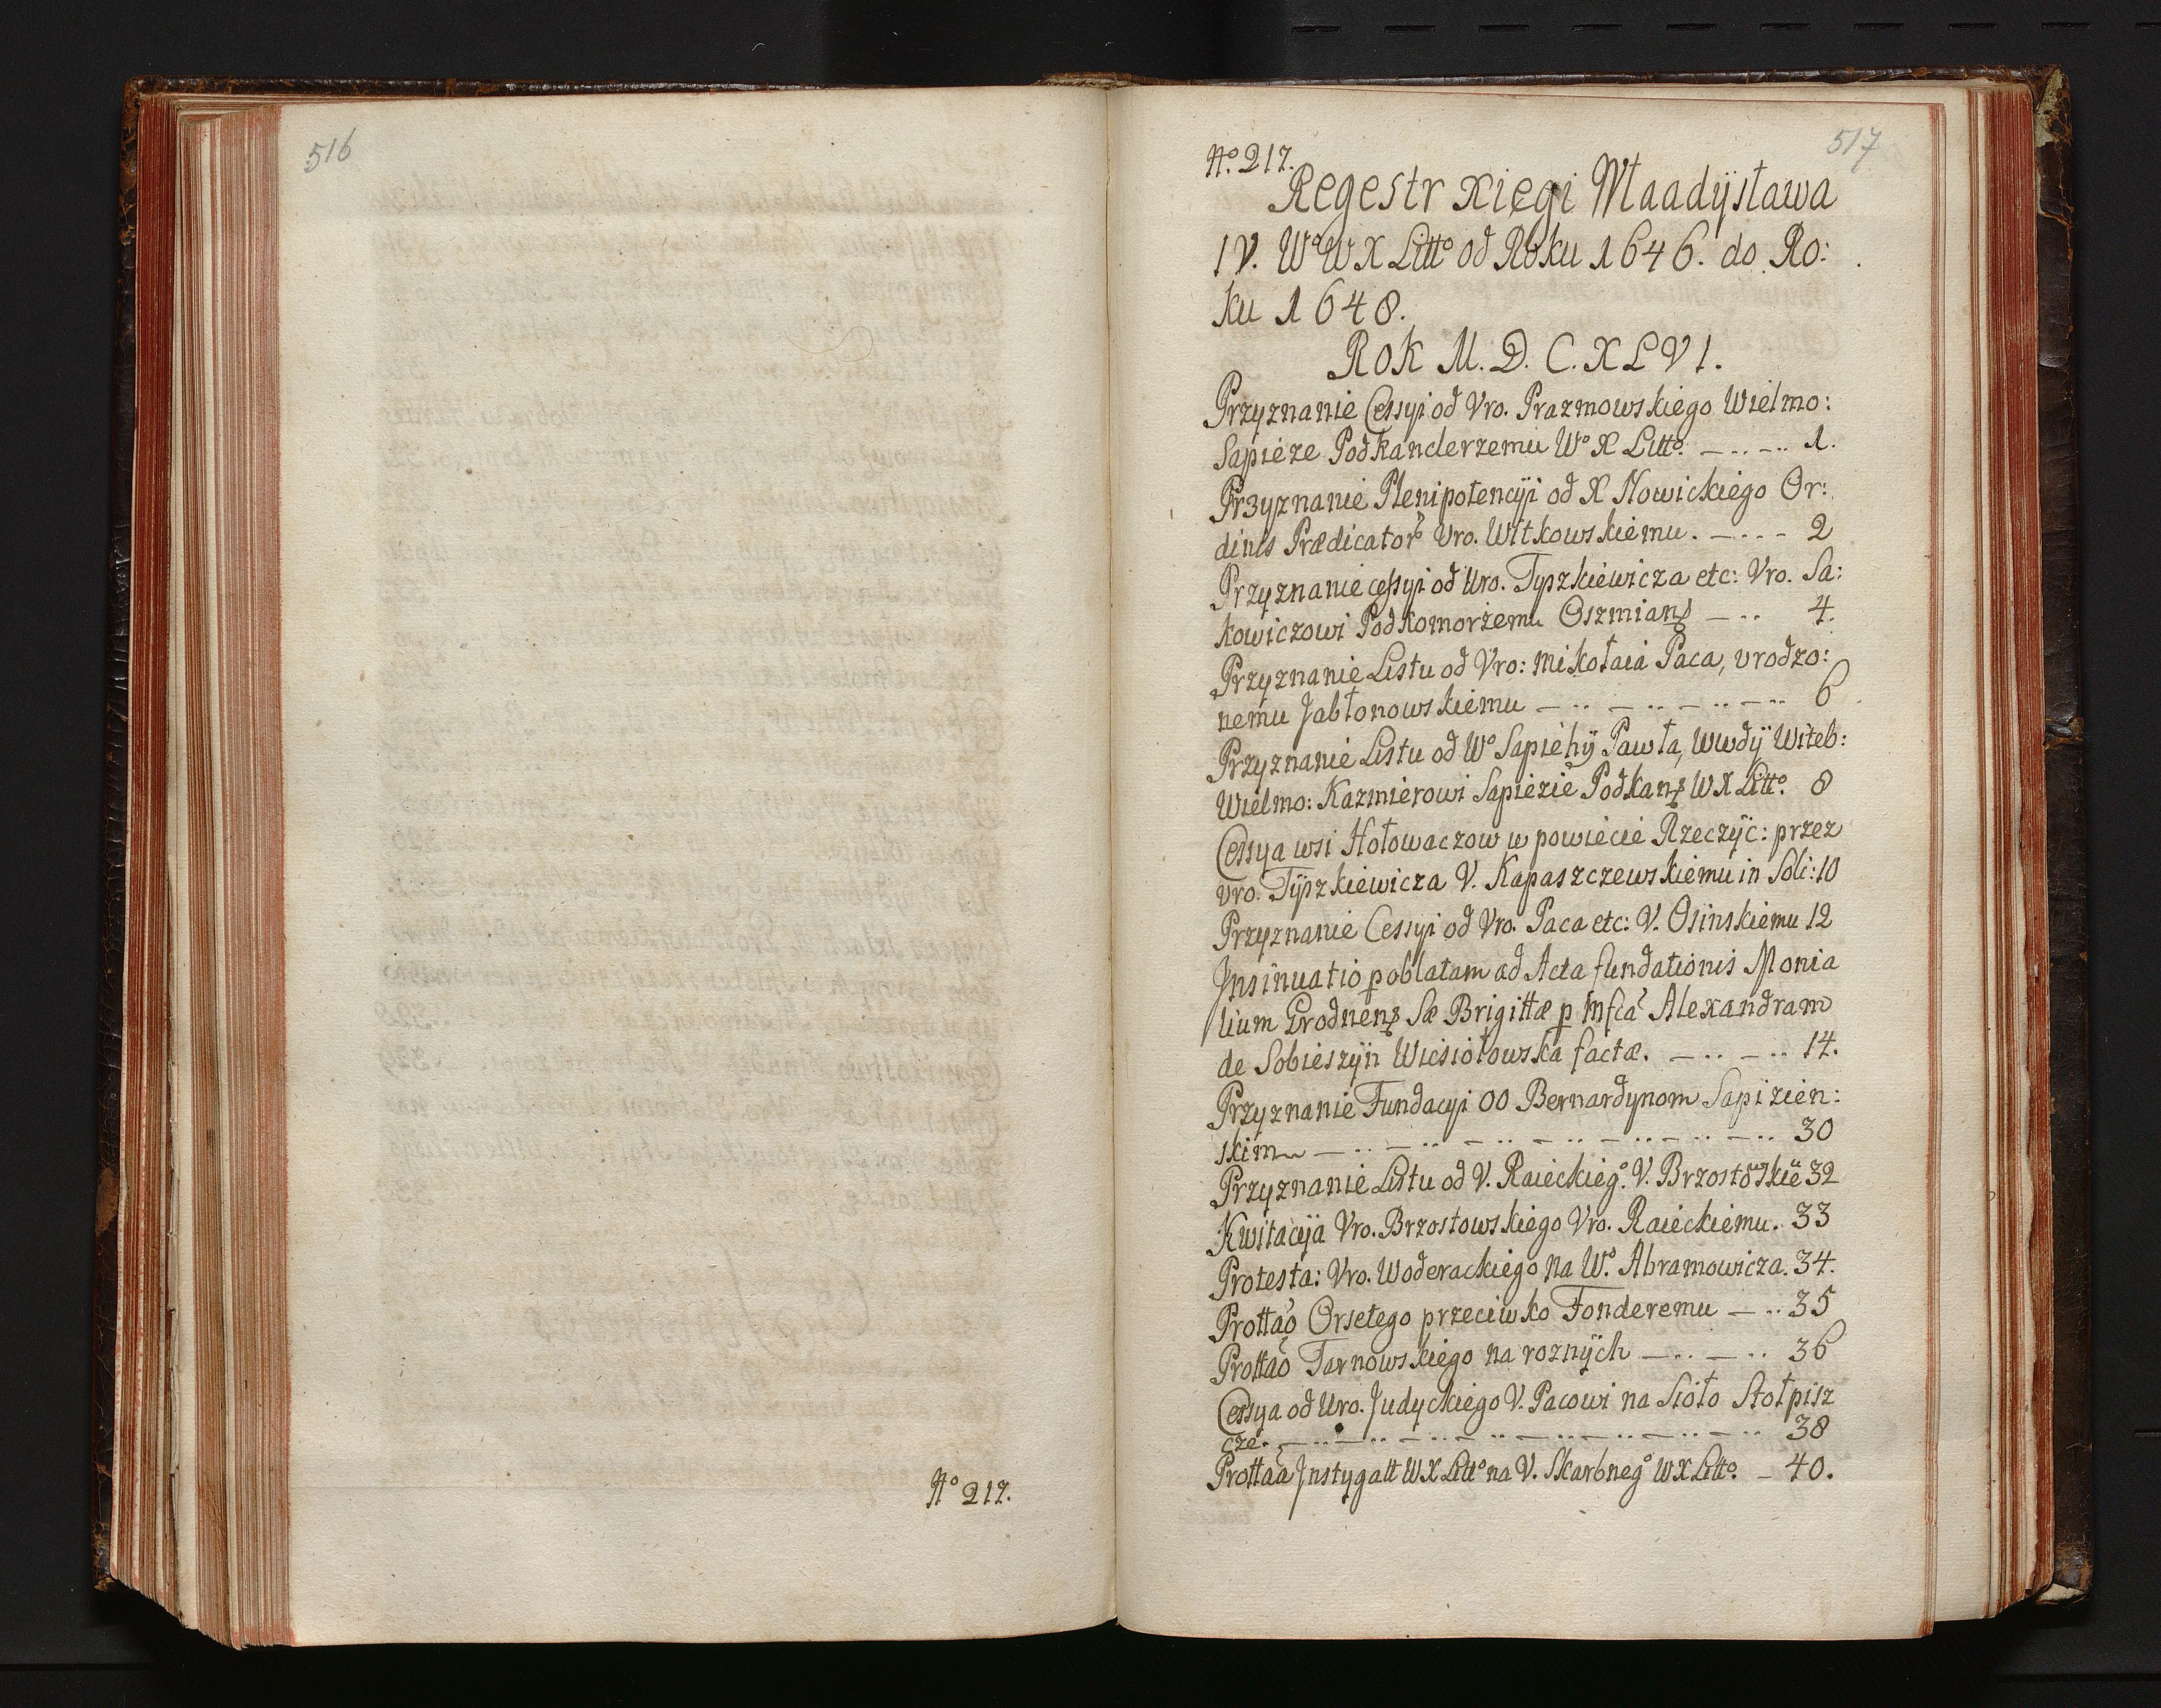 516
Nº 217.
517
Nº. 217.
Regestr xięgi Właadÿsława
IV. Wº W X Littº od Roku 1646. do Ro:
ku 1648.
Rok M. D. C. XLVI.
Przyznanie Cessyi od Vro. Prazmowskiego Wielmo:
Sapieze Podkanclerzemu Wº X Littº. 1.
Przyznanie Plenipotencÿi od X Nowickiego Or:
dinis Prædicator Vro. Witkowskiemu. 2
Przyznanie cessyi od Uro. Tyszkiewicza etc: Vro. Sa:
kowiczowi Podkomorzemu Oszmian 4.
Przyznanie Listu od Vro: Mikołaia Paca, vrodzo:
nemu Jabłonowskiemu 6
Przyznanie Listu od Wº Sapiehÿ Pawła, Wwdÿ Witeb:
Wielmo: Kazmierowi Sapiezie Podkan W X Littº. 8
Cessya wsi Hołowaczow w powiecie Rzeczÿc: przez
vro. Tÿszkiewicza V. Kapaszczewskiemu in Soli: 10
Przyznanie Cessyi od Vro. Paca etc: V. Osinskiemu 12
Jnsinuatio p oblatam ad Acta fundationis Monia
lium Grodnen Sæ Brigittæ p Mfca Alexandram
de Sobieszÿn Wiesiołowska factæ. 14.
Przyznanie Fundacyi OO Bernardynom Sapizien:
skim 30
Przyznanie Listu od V. Raieckiegº. V. Brzostowskieu 32
Kwitacÿa Vro. Brzostowskiego Vro. Raieckiemu. 33
Protesta: Vro. Woderackiego na Wº. Abramowicza. 34.
Prottao Orsetego przeciwko Fonderemu 35
Prottao Tarnowskiego na roznÿch 36
Cessya od Uro. Judyckiego V. Pacowi na Sioło Stołpisz
cze. 38
Prottaa Jnstygatt W X Littº na V. Skarbnegº W X Littº. 40.